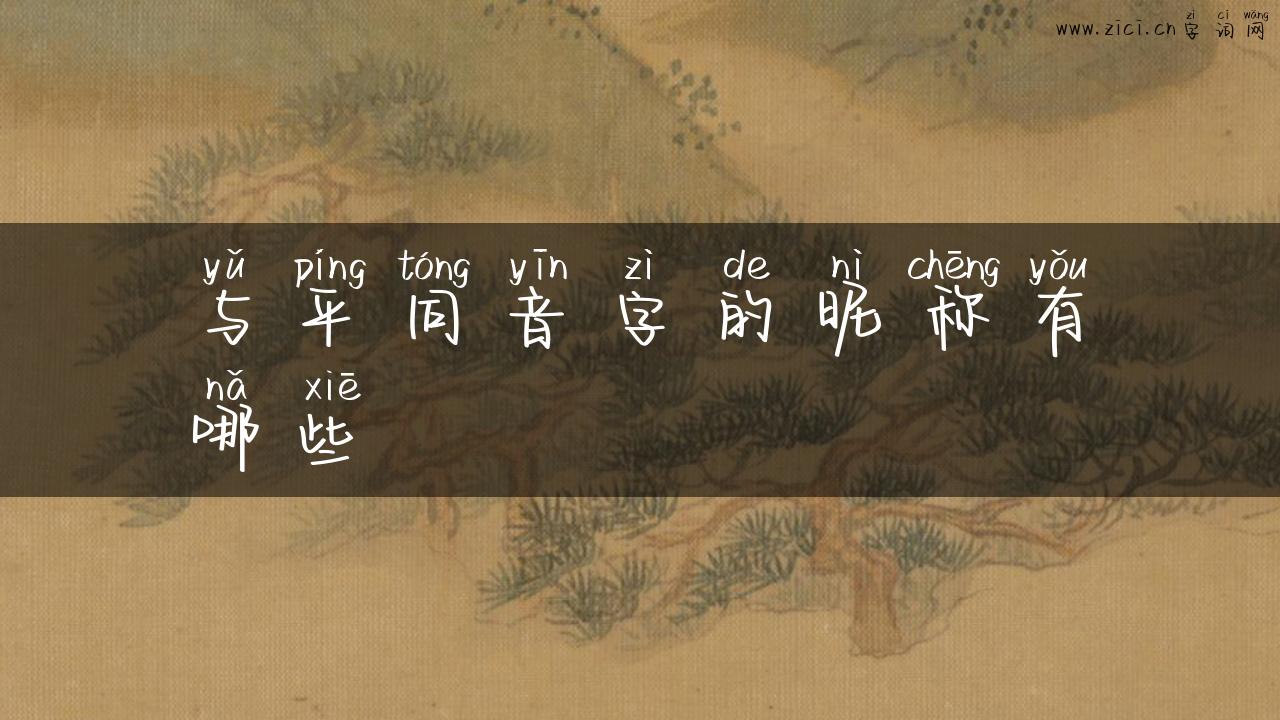 zì cí wǎng
www.zici.cn 字 词 网
yǔ píng tóng yīn zì de nì chēng yǒu
与 平 同 音 字 的 昵 称 有
nǎ xiē
哪 些